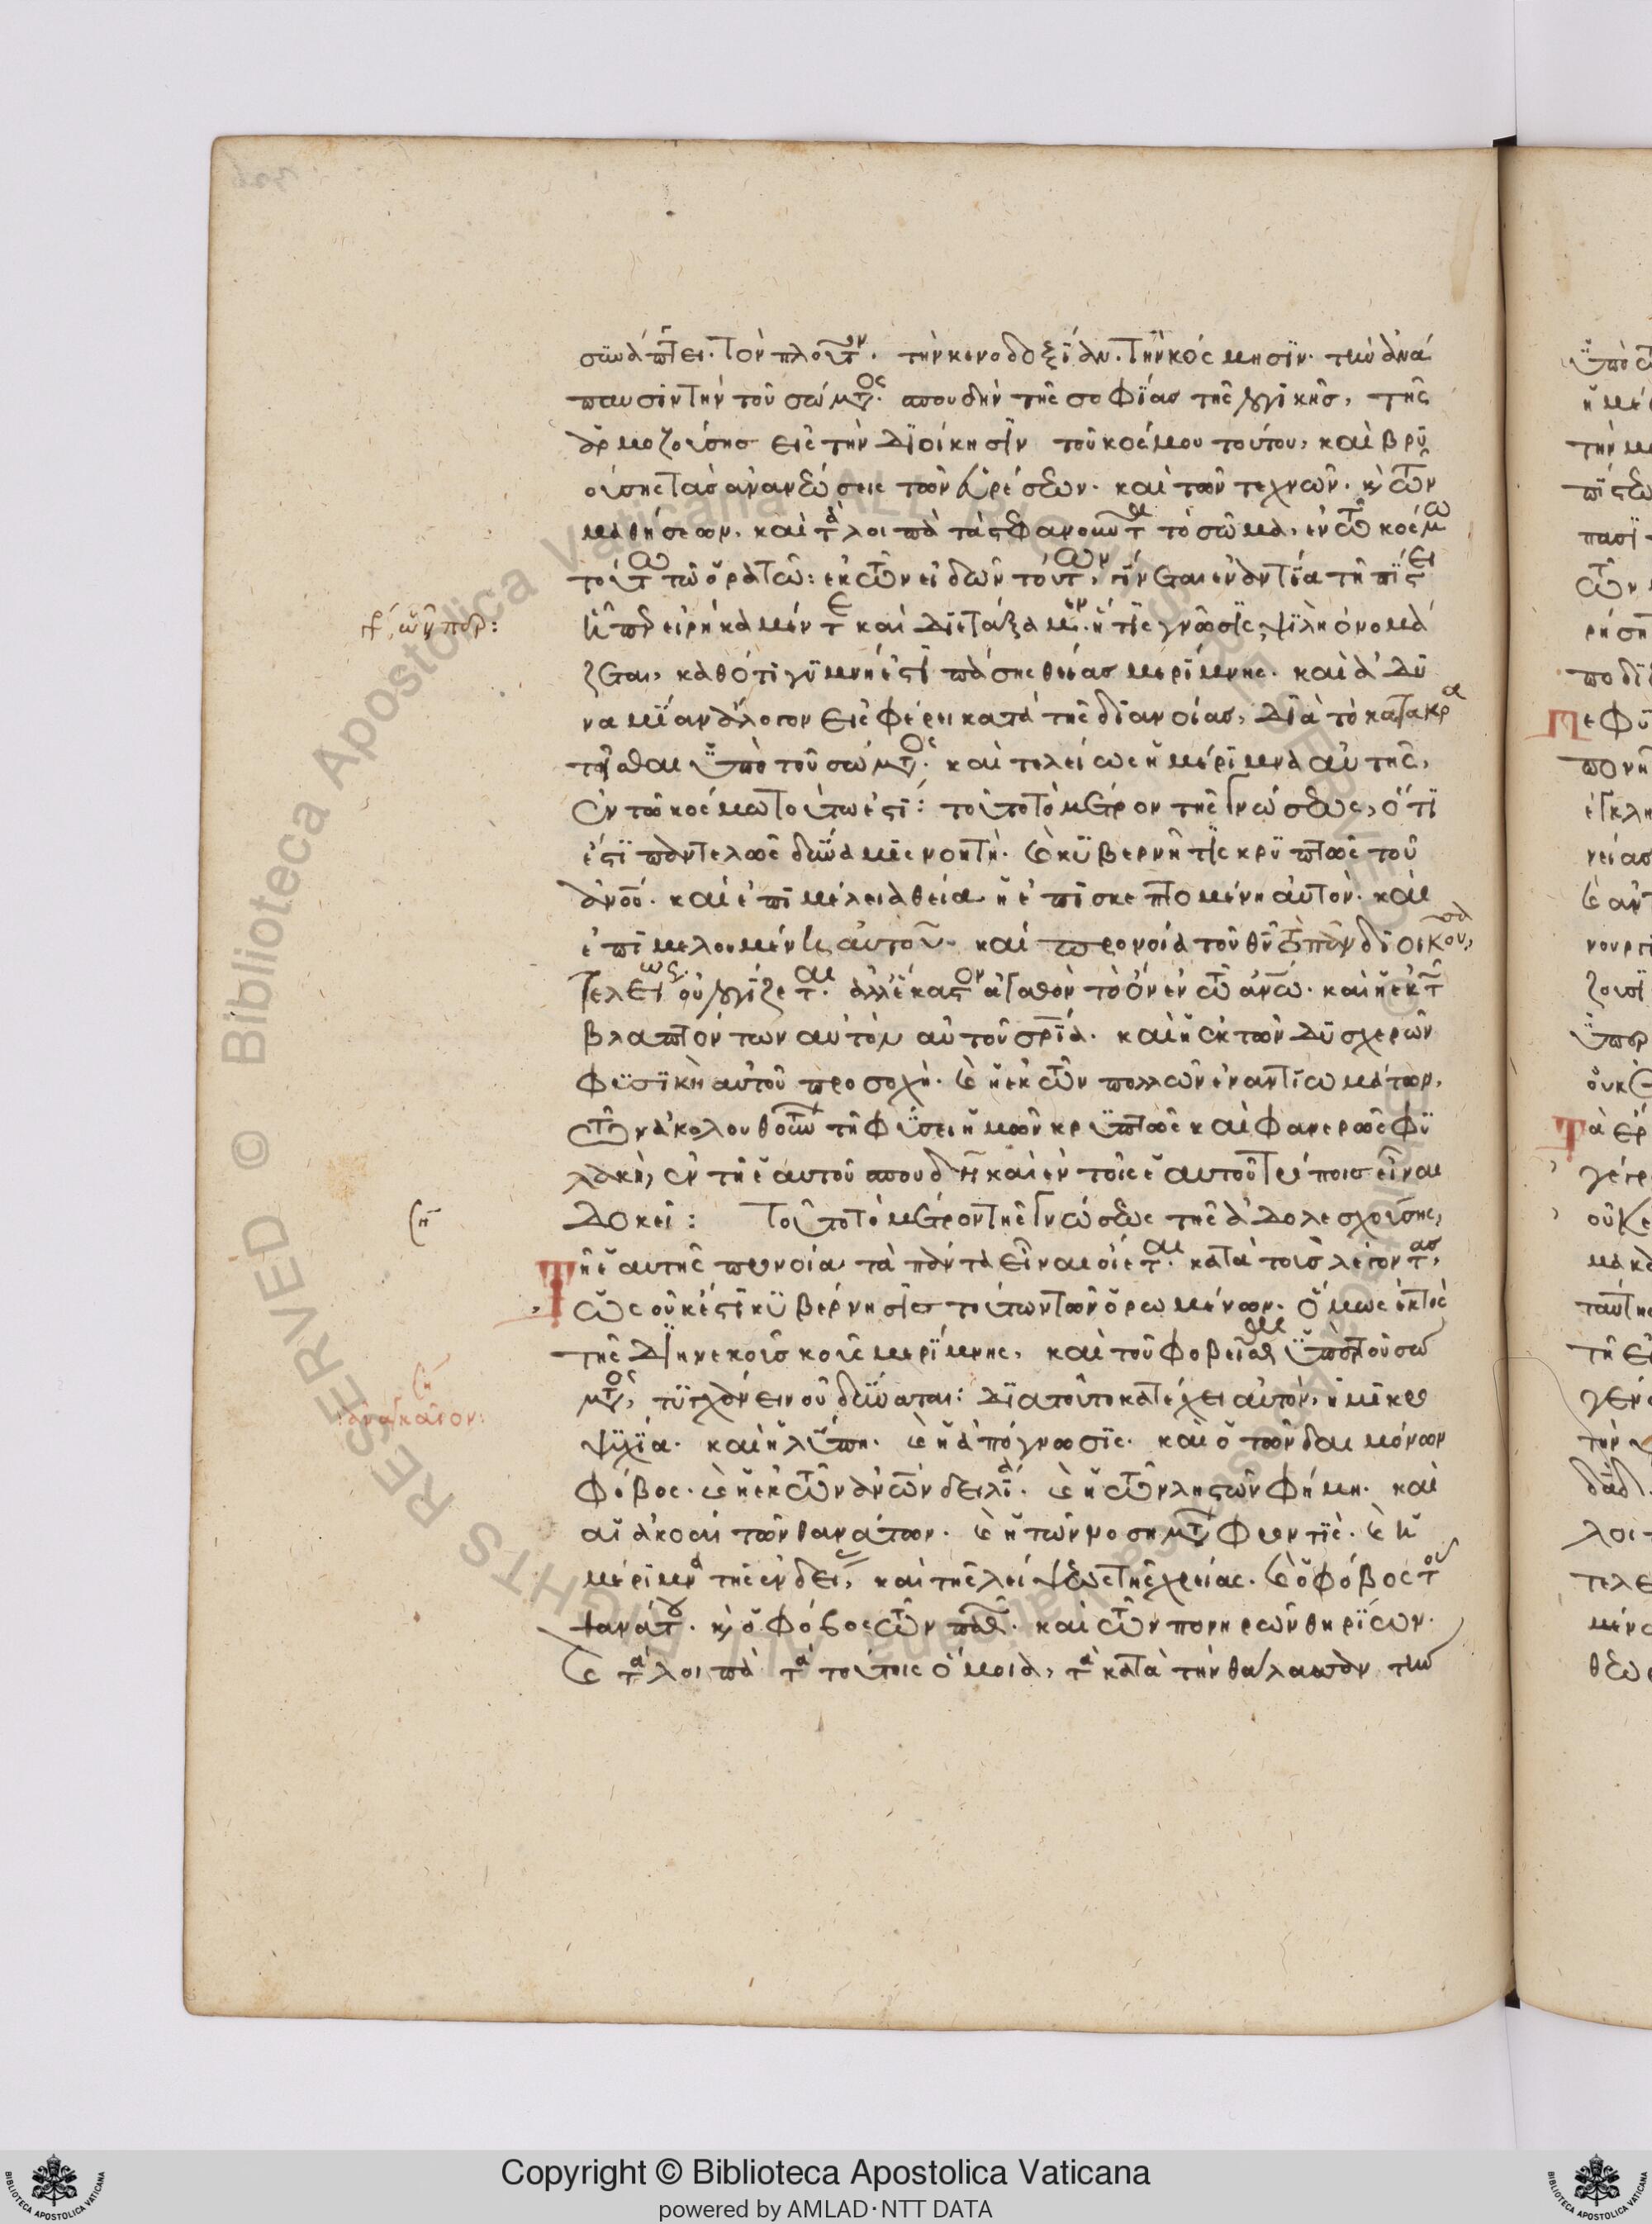 συνάπτει· τὸν πλοῦτον· τὴν κενοδοξίαν· τὴν κόσμησιν· τὴν ἀνά
παυσιν τὴν τοῦ σώματος· σπουδὴν τῆς σοφίας τῆς λογικῆς, τῆς
ἁρμοζούσης εἰς τὴν διοίκησιν τοῦ κόσμου τούτου, καὶ βρυ
ούσης τὰς ἀνανεώσεις τῶν εὑρέσεων· καὶ τῶν τεχνῶν· καὶ τῶν
μαθήσεων, καὶ τὰ λοιπὰ τὰ στεφανοῦντα τὸ σῶμα, ἐν τῷ κόσμῳ
τούτῳ τῷ ὁρατῷ: ἐκ τῶν εἰδῶν τούτων, γίνεται ἐναντία τῇ πίστει
ᾗπερ εἰρήκαμέν τε καὶ διετάξαμεν· ἥτις γνῶσις, ψιλὴ ὀνομά
ζεται, καθότι γυμνή ἐστι πάσης θείας μερίμνης· καὶ ἀδυ
ναμίαν ἄλογον εἰσφέρει κατὰ τῆς διανοίας, διὰ τὸ κατακρα
τεῖσθαι ὑπὸ τοῦ σώματος· καὶ τελείως ἡ μέριμνα αὐτῆς,
ἐν τῷ κόσμῳ τούτῳ ἐστί: τοῦτο τὸ μέτρον τῆς γνώσεως, ὅτι
ἐστὶ παντελῶς δύναμις νοητή· καὶ κυβερνήτις κρυπτῶς τοῦ
ἀνου· καὶ ἐπιμέλεια θεία ἡ ἐπισκεπτομένη αὐτόν· καὶ
ἐπιμελουμένη αὐτοῦ· καὶ προνοίᾳ τοῦ θυ τὸ πᾶν διοικοῦσα,
τελείως οὐ λογίζεται· ἀλλ' ἕκαστον ἀγαθὸν τὸ ὂν ἐν τῷ ἀνω· καὶ ἡ ἐκ τῶν
βλαπτόντων αὐτὸν αὐτοῦ σρία· καὶ ἡ ἐκ τῶν δυσχερῶν
φυσικὴ αὐτοῦ προσοχή· καὶ ἡ ἐκ τῶν πολλῶν ἐναντιωμάτων,
τῶν ἀκολουθούντων τῇ φύσει ἡμῶν κρυπτῶς καὶ φανερῶς φυ
λακή, ἐν τῇ ἑαυτοῦ σπουδῇ καὶ ἐν τοῖς ἑαυτοῦ τρόποις εἶναι
δοκεῖ: τοῦτο τὸ μέτρον τῆς γνώσεως τῆς ἀδολεσχούσης,
Τῇ ἑαυτῆς προνοίᾳ τὰ πάντα εἶναι οἴεται· κατὰ τοὺς λέγοντας,
ὡς οὐκ ἔστι κυβέρνησις τούτων τῶν ὁρωμένων· ὅμως ἐκτὸς
τῆς διηνεκοῦς μερίμνης, καὶ τοῦ φοβεῖσθαι ὑπὲρ τοῦ σώ
ματος, τυγχάνειν οὐ δύναται: διὰ τοῦτο κατέχει αὐτόν, ἡ μικρο
ψυχία· καὶ ἡ λύπη· καὶ ἡ ἀπόγνωσις· καὶ ὁ τῶν δαιμόνων
φόβος· καὶ ἡ ἐκ τῶν ἀνων δειλία· καὶ ἡ τῶν λῃστῶν φήμη· καὶ
αἱ ἀκοαὶ τῶν θανάτων· καὶ ἡ τῶν νοσημάτων φροντίς· καὶ ἡ
μέριμνα τῆς ἐνδείας, καὶ τῆς λείψεως τῆς χρείας· καὶ ὁ φόβος τοῦ
θανάτου· καὶ ὁ φόβος τῶν παθῶν· καὶ τῶν πονηρῶν θηρίων·
καὶ τὰ λοιπὰ τὰ τούτοις ὅμοια, τὰ κατὰ τὴν θάλασσαν τὴν
ἀναγκαῖον:
© Biblioteca Apostolica Vaticana ALL RIGHTS RESERVED
Copyright © Biblioteca Apostolica Vaticana
powered by AMLAD·NTT DATA